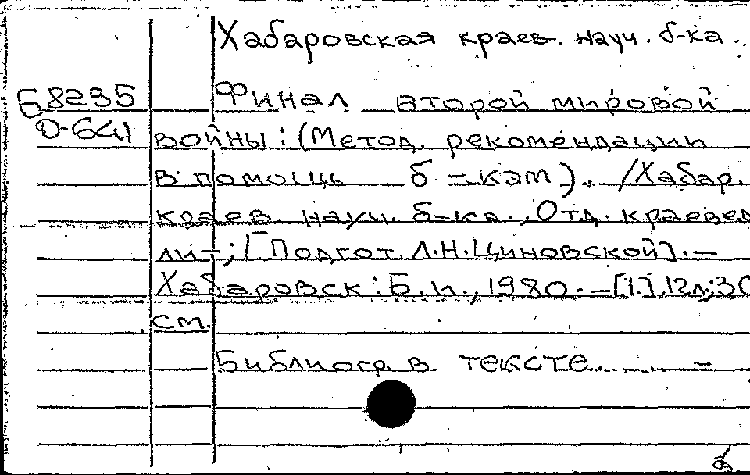 Хабаровская краев. науч. б-ка
Б8295 Финал второй мировой
D-641 войны: (Метод. рекомендации
в помощь б-кам). /Хабар.
краев. науч. б-ка., Отд. краевед.
ли-; [Подгот. Л.Н.Циновской]. —
Хабаровск: Б.и., 1980. — [1], 12л; 30
см.
Библиогр. в тексте. —